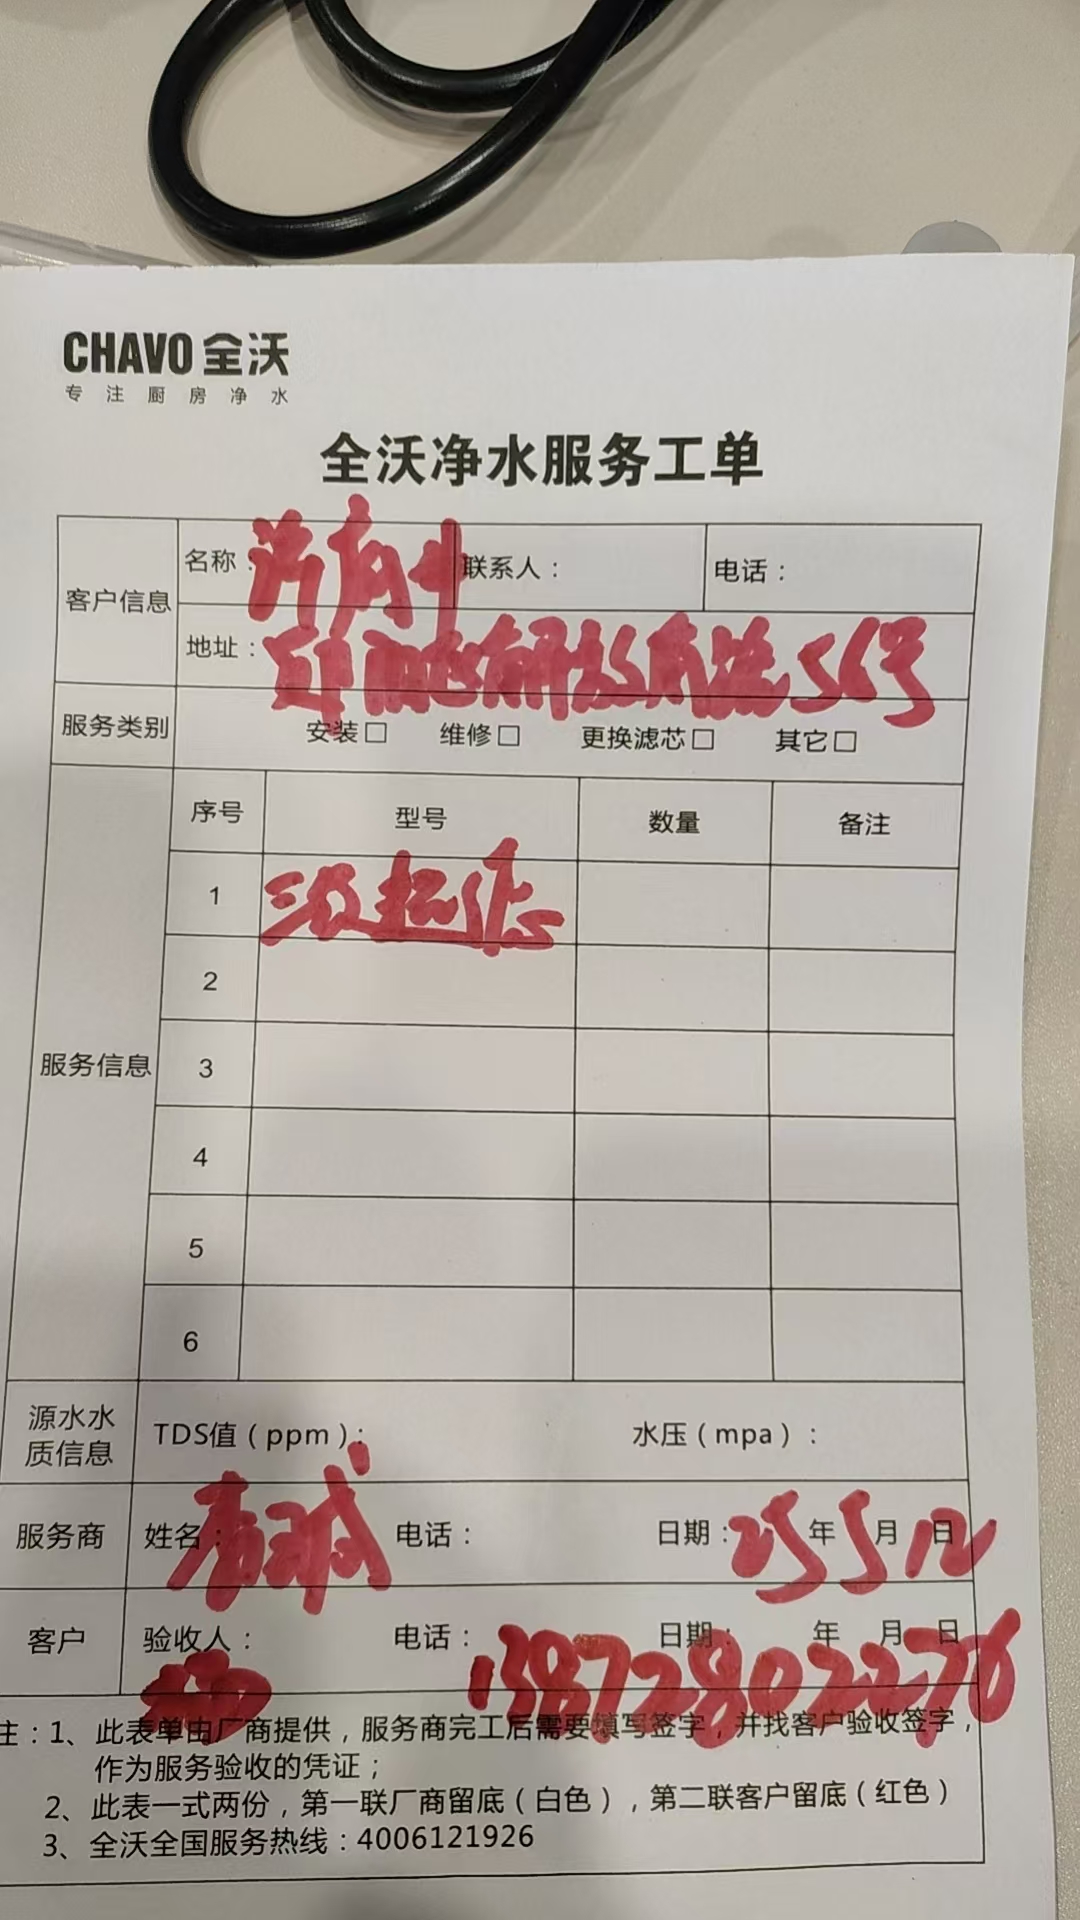 CHAVO 全沃
专注厨房净水
全沃净水服务工单
客户信息
名称：
联系人：
电话：
地址： 56号
服务类别
安装□ 维修□ 更换滤芯□ 其它□
服务信息
序号 型号 数量 备注
1 三级超滤
2
3
4
5
6
源水水质信息
TDS值（ppm）：
水压（mpa）：
服务商
姓名：
电话：
日期：25年5月12日
客户
验收人：杨
电话：13872802276
日期： 年 月 日
注：1、此表单由厂商提供，服务商完工后需要填写签字，并找客户验收签字，
作为服务验收的凭证；
2、此表一式两份，第一联厂商留底（白色），第二联客户留底（红色）
3、全沃全国服务热线：4006121926